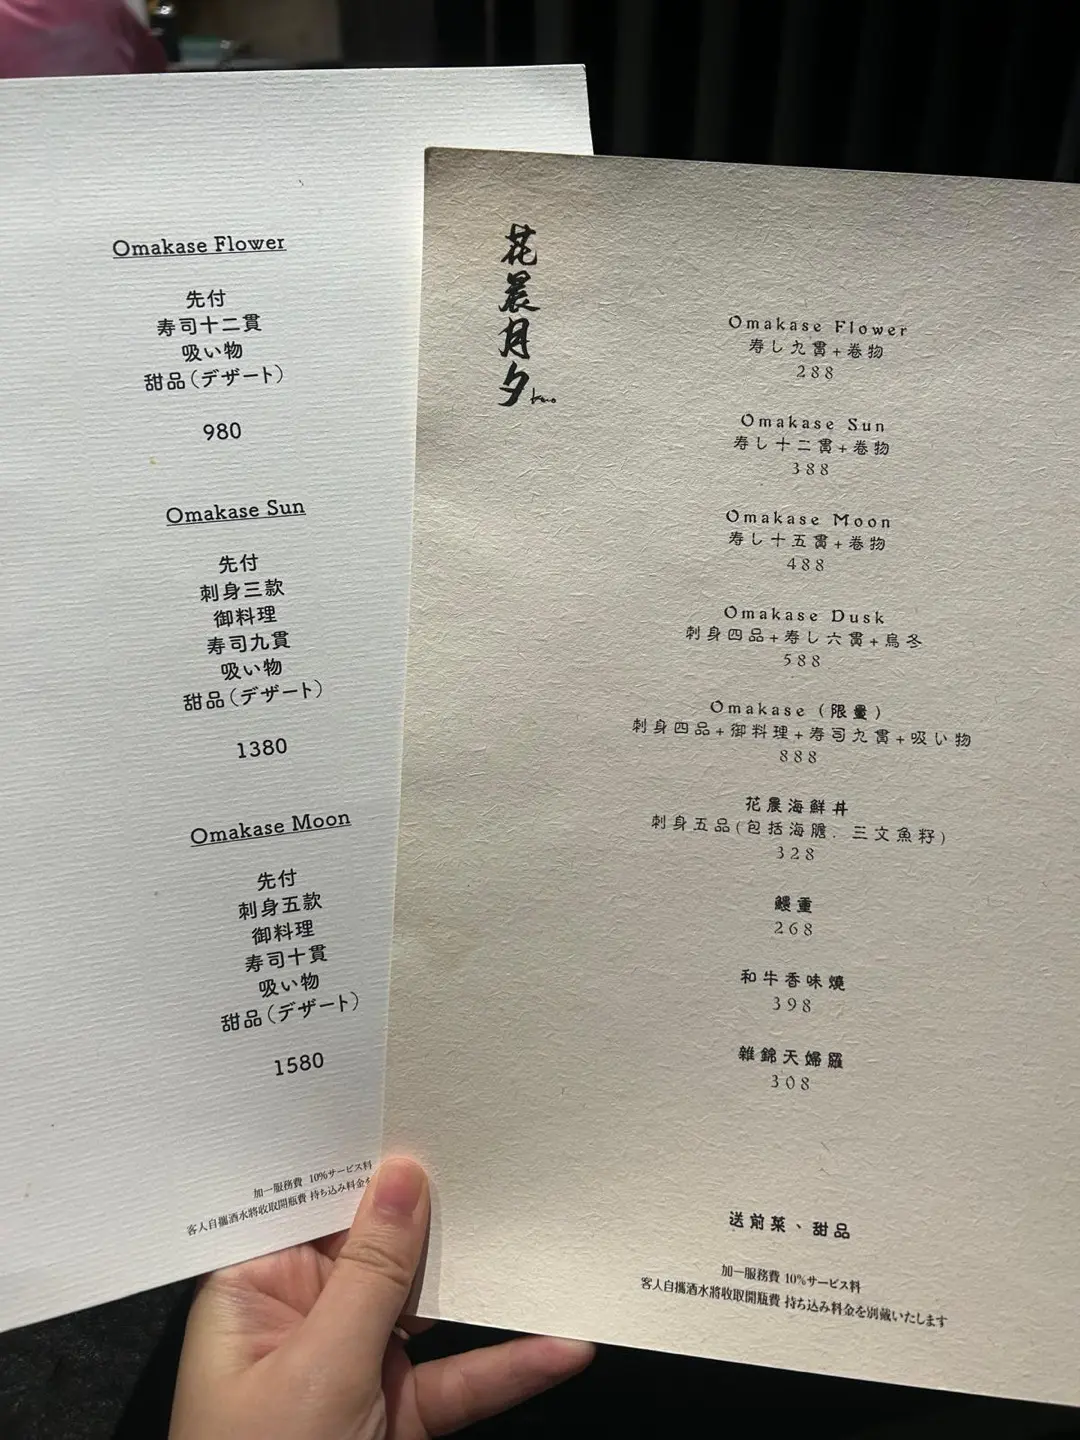 Omakase Flower
先付
寿司十二貫
吸い物
甜品(デザート)
980
Omakase Sun
先付
刺身三款
御料理
寿司九貫
吸い物
甜品(デザート)
1380
Omakase Moon
先付
刺身五款
御料理
寿司十貫
吸い物
甜品(デザート)
1580
加一服務費 10%サービス料
客人自攜酒水將收取開瓶費 持ち込み料金
花晨月夕
Omakase Flower
寿し九貫+卷物
288
Omakase Sun
寿し十二貫+卷物
388
Omakase Moon
寿し十五貫+卷物
488
Omakase Dusk
刺身四品+寿し六貫+烏冬
588
Omakase (限量)
刺身四品+御料理+寿司九貫+吸い物
888
花晨海鮮丼
刺身五品(包括海膽、三文魚籽)
328
鰻重
268
和牛香味燒
398
雜錦天婦羅
308
送前菜、甜品
加一服務費 10%サービス料
客人自攜酒水將收取開瓶費 持ち込み料金を別戴いたします